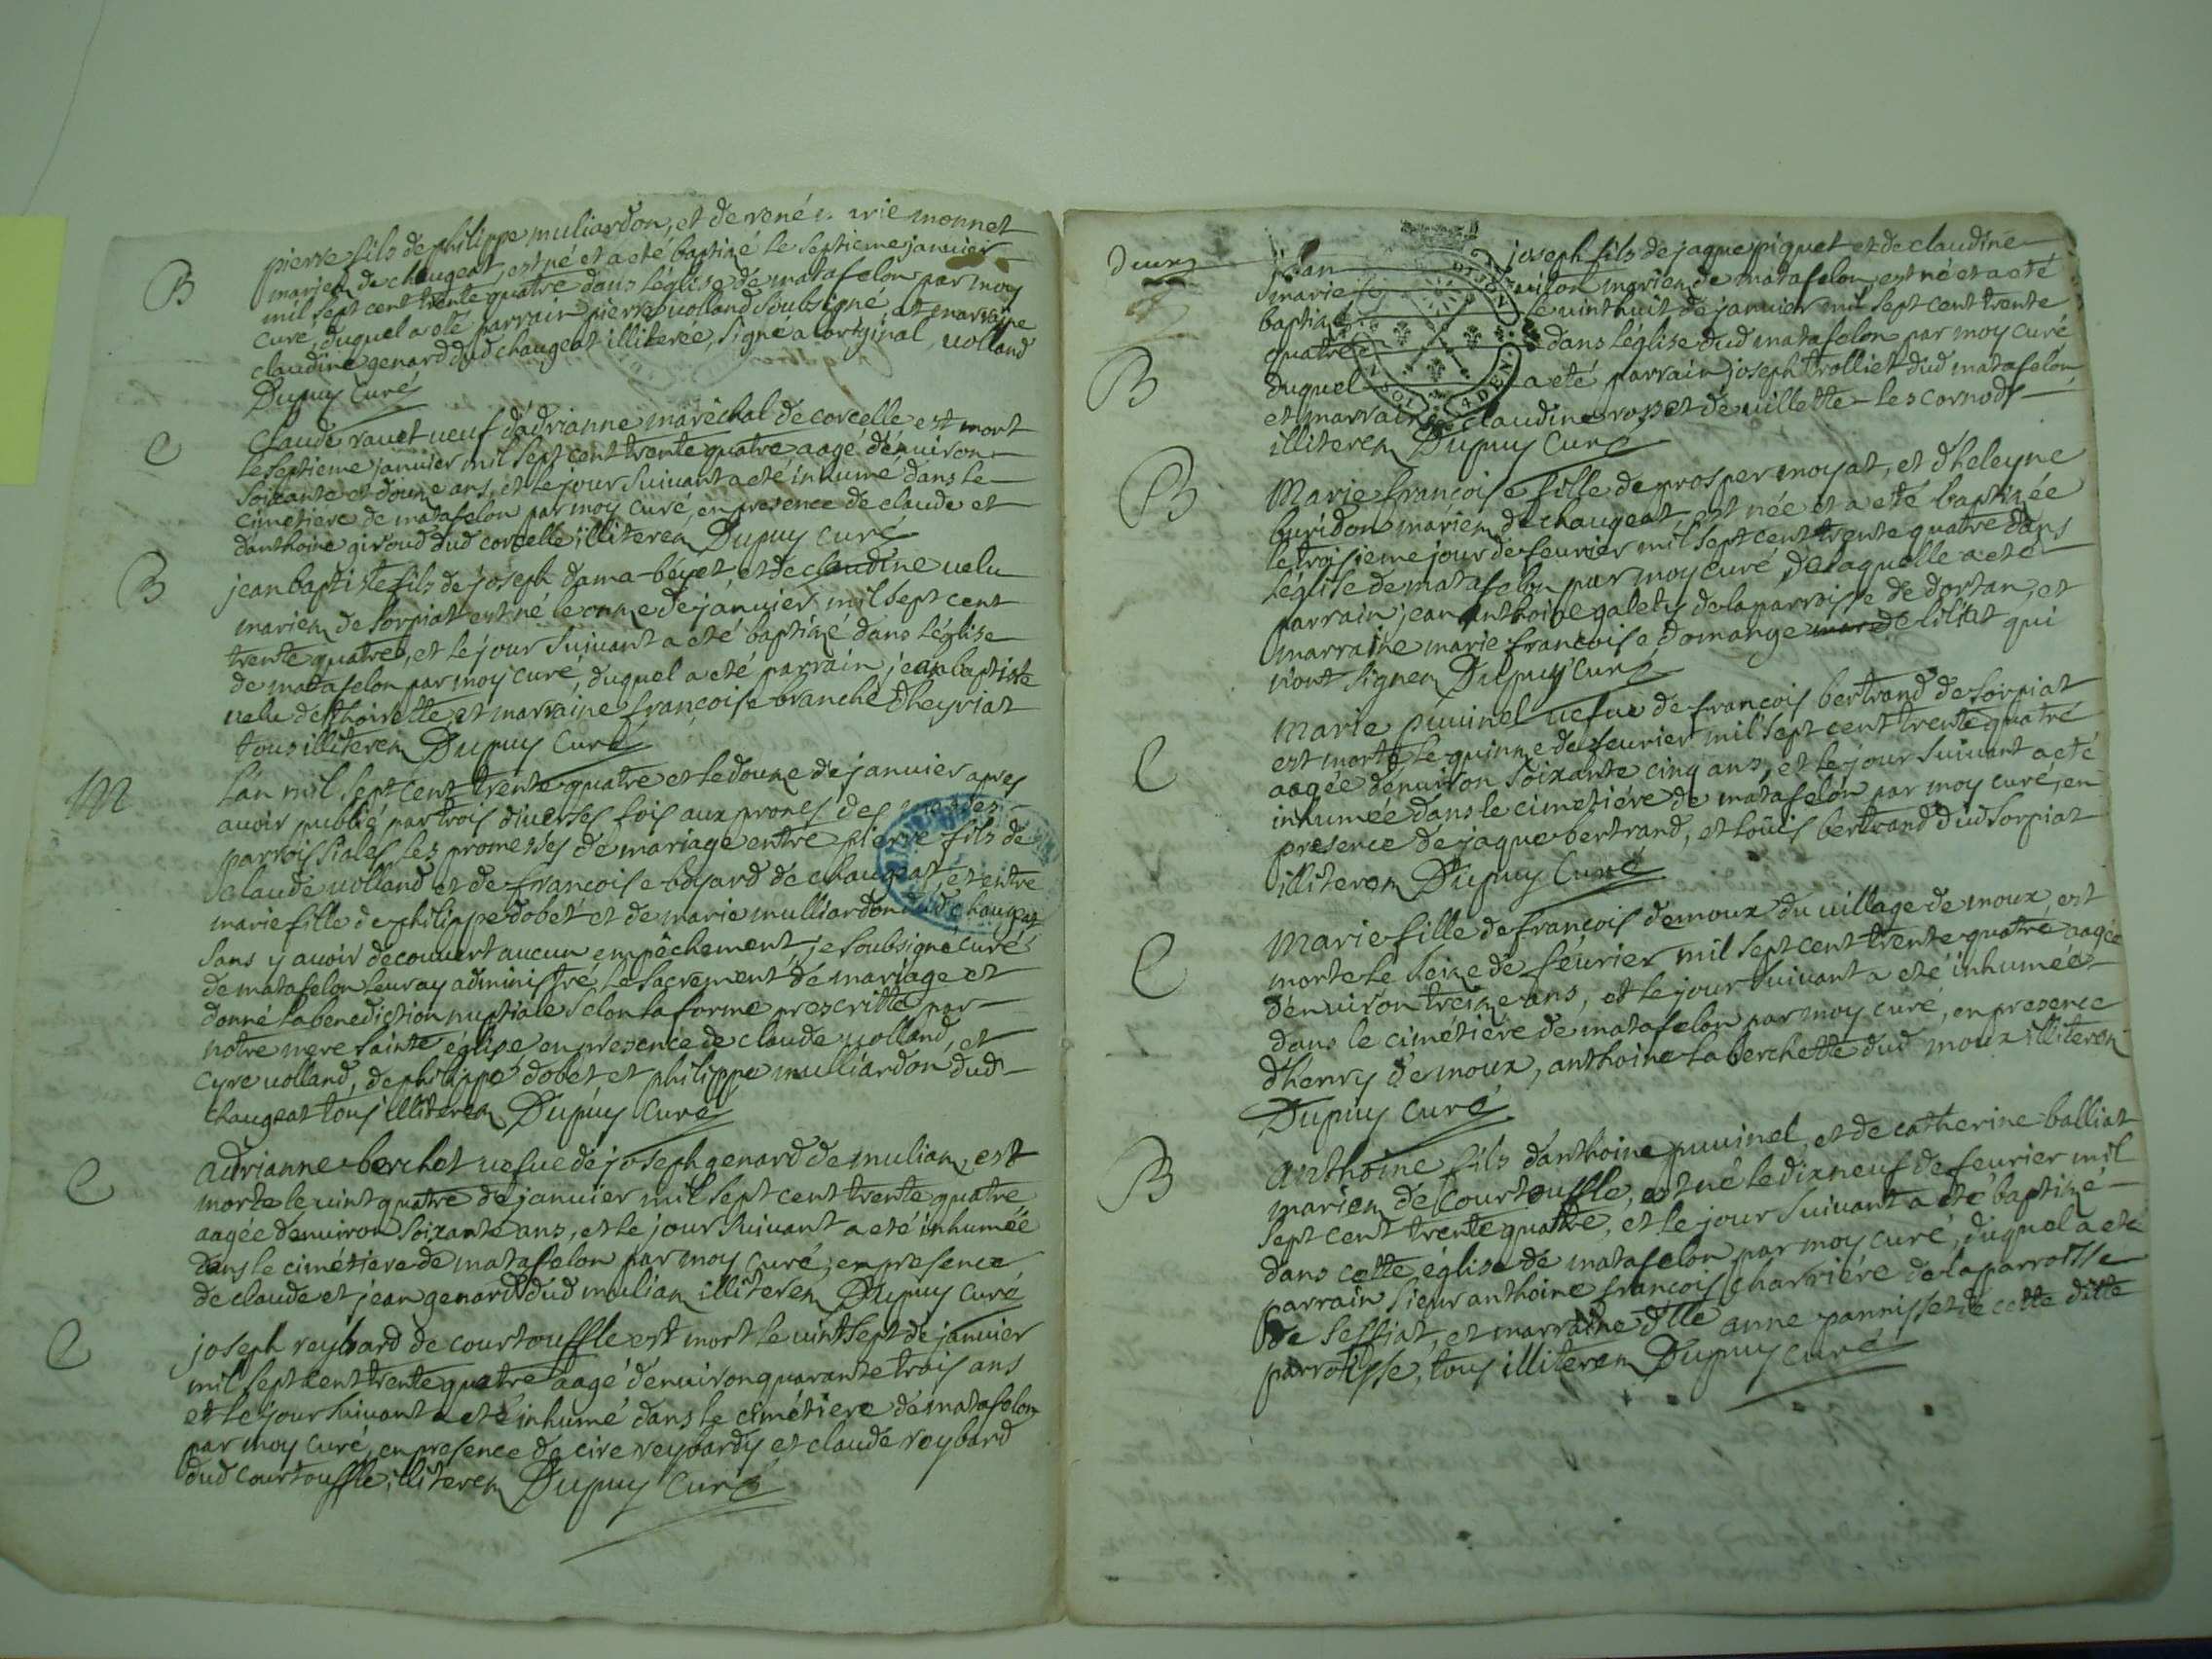 B
pierre fils de philippe muliardon, et de rené monnet
mariez de chaugeat, est né et a eté baptizé le septieme janvier
mil sept cent trente quatre dans l'église de matafelon par moy
curé, duquel a eté parrain pierre volland soubsigné, et marraine
claudine genard dud chaugeat illiterée, signé a l'original, volland
Dupuy Curé
C
claude ravet veuf d'adrianne maréchal de corcelle est mort
le septieme janvier mil sept cent trente quatre aagé d'environ
soixante et douze ans, et le jour suivant a eté inhumé dans le
cimetiere de matafelon par moy curé, en presence de claude et
d'anthoine giroud dud corcelle illiterez Dupuy curé
B
jean baptiste fils de joseph dama-beyet, et de claudine velu
mariez de sorpiat est né le onze de janvier mil sept cent
trente quatre, et le jour suivant a eté baptizé dans l'église
de matafelon par moy curé, duquel a eté parrain jean baptiste
velu de thoirette, et marraine françoise branche d'heyriat
tous illiterez Dupuy curé
M
l'an mil sept cent trente quatre et le douze de janvier apres
avoir publié par trois diverses fois aux prones des messes
parroissiales les promesses de mariage entre pierre fils de
claude volland et de françoise boyard de chaugeat, et entre
marie fille de philippe dobet et de marie mulliardon dud chaugeat
sans y avoir decouvert aucun empêchement, je soubsigné curé
de matafelon leur ay administré le sacrement de mariage et
donné la benediction nuptiale selon la forme prescritte par
notre mere sainte église en presence de claude volland, et
cyre volland, de philippe dobet et philippe mulliardon dud
chaugeat tous illiterez Dupuy Curé
C
adrianne berchet vefve de joseph genard de mulian, est
morte le vint quatre de janvier mil sept cent trente quatre
aagée d'environ soixante ans, et le jour suivant a eté inhumée
dans le cimétiere de matafelon par moy curé, en presence
de claude et jean genard dud mulian illiterez Dupuy curé
C
joseph reybard de courtouffle est mort le vint sept de janvier
mil sept cent trente quatre aagé d'environ quarante trois ans
et le jour suivant a eté inhumé dans le cimétiere de matafelon
par moy curé, en presence de cire reybard et claude reybard
dud courtouffle illiterez Dupuy Curé
Deux
jean joseph fils de jaque piquet et de claudine
marie mariez de matafelon, est né et a eté
baptizé le vint huit de janvier mil sept cent trente
quatre dans l'église dud matafelon par moy curé
B
duquel a eté parrain joseph trolliet dud matafelon
et marraine claudine rosset de villette-les cornods
illiterez Dupuy Curé
B
Marie françoise fille de prosper moyat, et d'heleyne
buridon mariez de chaugeat, est née et a eté baptizée
le troisieme jour de fevrier mil sept cent trente quatre dans
l'église de matafelon par moy curé, de laquelle a eté
parrain jean anthoine galety de la parroisse de dortan, et
marraine marie françoise domange de liliat qui
n'ont signez Dupuy Curé
C
marie puvinel vefve de françois bertrand de sorpiat
est morte le quinze de fevrier mil sept cent trente quatre
aagée d'environ soixante cinq ans, et le jour suivant a eté
inhumée dans le cimetiére de matafelon par moy curé, en
presence de jaque bertrand, et loüis bertrand dud sorpiat
illiterez Dupuy Curé
C
Marie fille de françois demoux du village de moux, est
morte le seize de fevrier mil sept cent trente quatre aagée
d'environ treize ans, et le jour suivant a eté inhumée
dans le cimétiére de matafelon par moy curé, en presence
d'henry demoux, anthoine laberchette dud moux illiterez
Dupuy Curé
B
Anthoine fils d'anthoine puvinel, et de catherine balliat
mariez de Courtouffle, est né le dixneuf de fevrier mil
sept cent trente quatre, et le jour suivant a eté baptizé
dans cette église de matafelon par moy curé, duquel a eté
parrain sieur anthoine françois charriére de la parroisse
de seffiat, et marraine dlle anne pannisset de cette ditte
parroisse, tous illiterez Dupuy curé